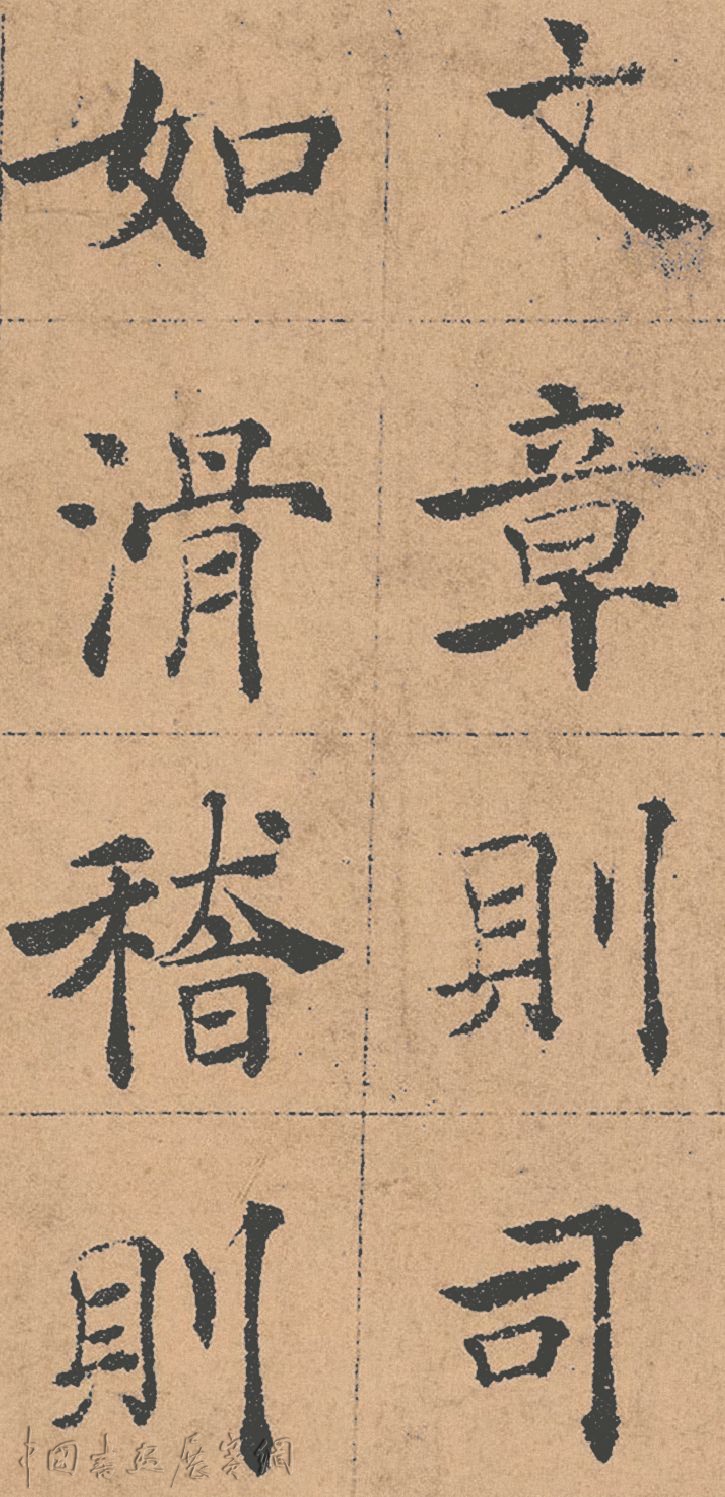 文章則司
如滑稽則
中国书法展赛網